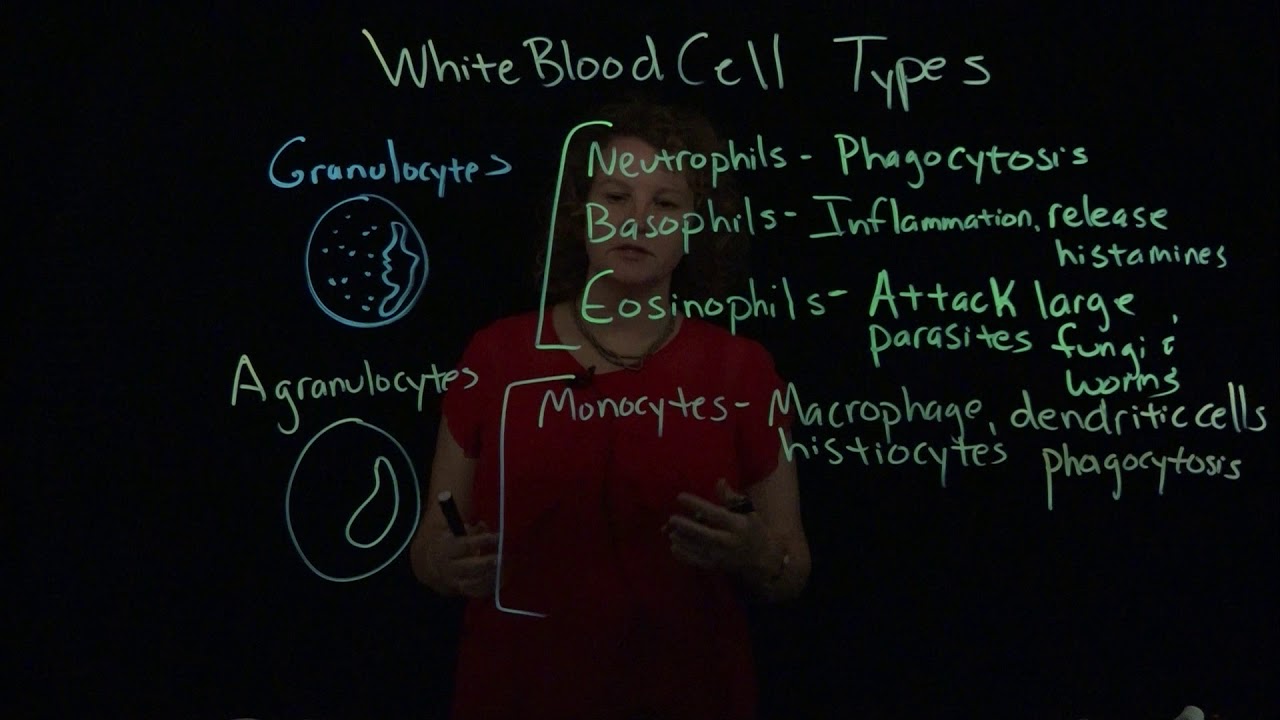 White Blood Cell Types
Granulocytes
Neutrophils - Phagocytosis
Basophils - Inflammation, release
histamines
Eosinophils - Attack large
parasites, fungi &
worms
Agranulocytes
Monocytes - Macrophage, dendritic cells
histiocytes phagocytosis